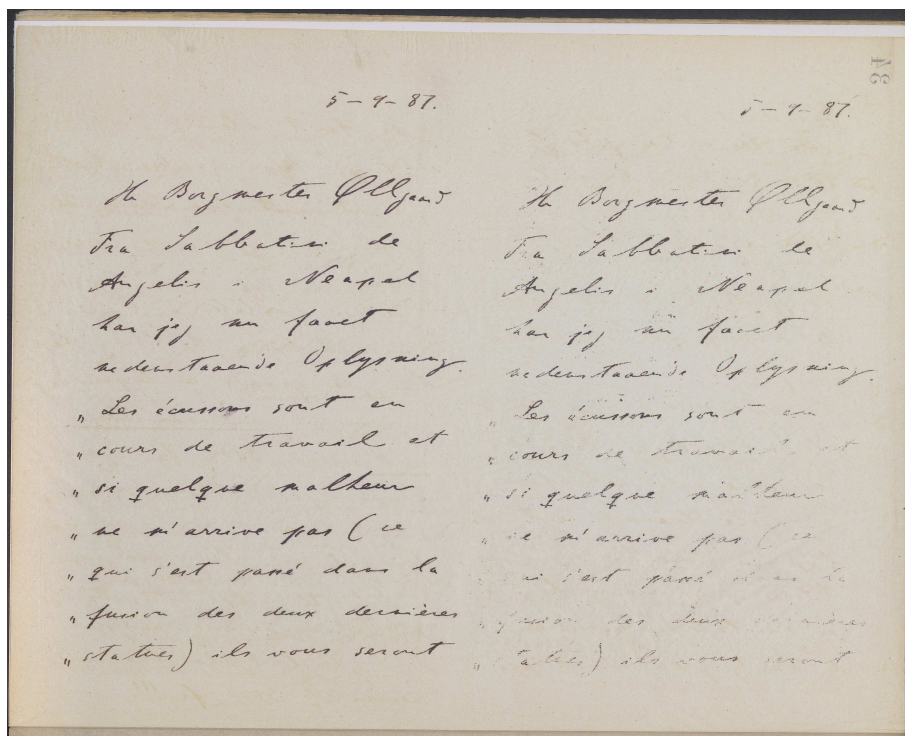 5-9-87.
Hr Borgmester Øllgaard
Fra Sabbatini de
Angelis i Neapel
har jeg nu faaet
nedenstaaende Oplysning.
„ Les écussons sont en
„ cours de travail et
„ si quelque malheur
„ ne m'arrive pas (ce
„ qui s'est passé dans la
„ fusion des deux dernières
„ statues) ils vous seront
5-9-87.
Hr Borgmester Øllgaard
Fra Sabbatini de
Angelis i Neapel
har jeg nu faaet
nedenstaaende Oplysning.
„ Les écussons sont en
„ cours de travail et
„ si quelque malheur
„ ne m'arrive pas (ce
qui s'est passé dans la
„ fusion des deux dernières
„ statues) ils vous seront